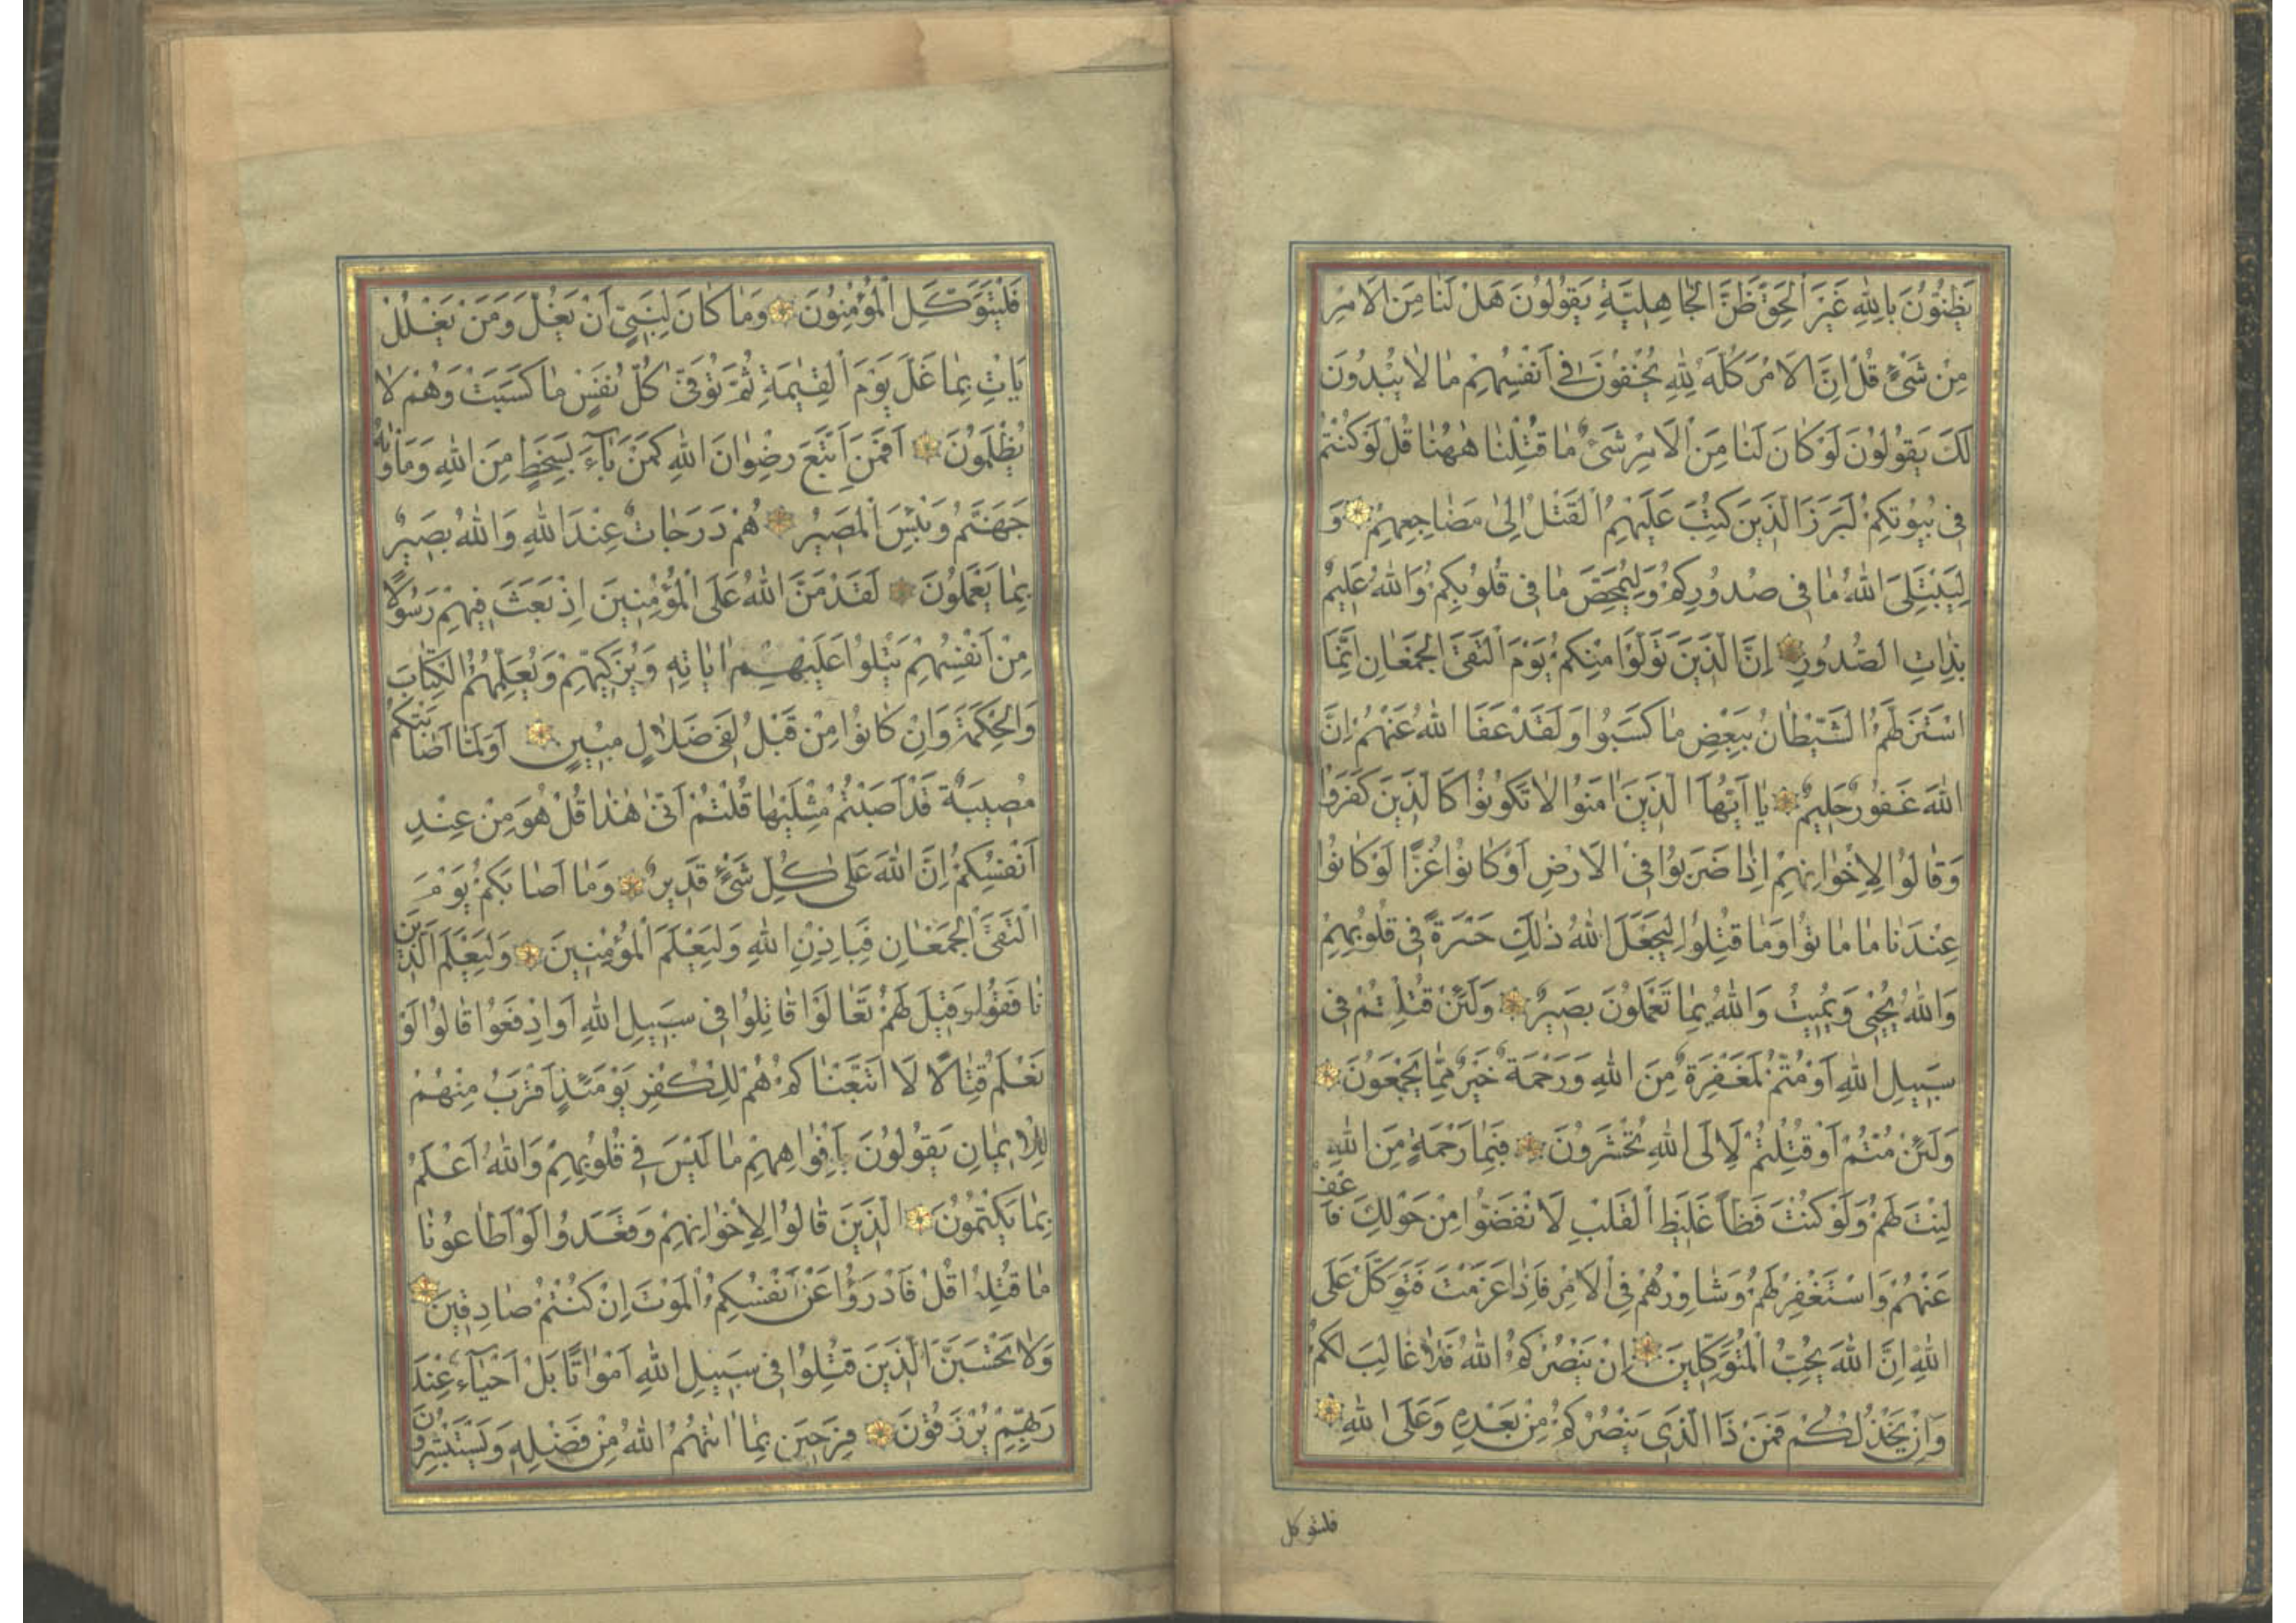 يَظُنُّونَ بِاللهِ غَيْرَ الْحَقِّ ظَنَّ الْجَاهِلِيَّةِ يَقُولُونَ هَلْ لَنَا مِنَ الْاَمْرِ
مِنْ شَىْءٍ قُلْ اِنَّ الْاَمْرَ كُلَّهُ لِلّٰهِ يُخْفُونَ فِى اَنْفُسِهِمْ مَا لَا يُبْدُونَ
لَكَ يَقُولُونَ لَوْ كَانَ لَنَا مِنَ الْاَمْرِ شَىْءٌ مَا قُتِلْنَا هٰهُنَا قُلْ لَوْ كُنْتُمْ
فِى بُيُوتِكُمْ لَبَرَزَ الَّذِينَ كُتِبَ عَلَيْهِمُ الْقَتْلُ اِلٰى مَضَاجِعِهِمْ وَ
لِيَبْتَلِىَ اللهُ مَا فِى صُدُورِكُمْ وَلِيُمَحِّصَ مَا فِى قُلُوبِكُمْ وَاللهُ عَلِيمٌ
بِذَاتِ الصُّدُورِ اِنَّ الَّذِينَ تَوَلَّوْا مِنْكُمْ يَوْمَ الْتَقَى الْجَمْعَانِ اِنَّمَا
اسْتَزَلَّهُمُ الشَّيْطَانُ بِبَعْضِ مَا كَسَبُوا وَلَقَدْ عَفَا اللهُ عَنْهُمْ اِنَّ
اللهَ غَفُورٌ حَلِيمٌ يَا اَيُّهَا الَّذِينَ اٰمَنُوا لَا تَكُونُوا كَالَّذِينَ كَفَرُوا
وَقَالُوا لِاِخْوَانِهِمْ اِذَا ضَرَبُوا فِى الْاَرْضِ اَوْ كَانُوا غُزًّا لَوْ كَانُوا
عِنْدَنَا مَا مَاتُوا وَمَا قُتِلُوا لِيَجْعَلَ اللهُ ذٰلِكَ حَسْرَةً فِى قُلُوبِهِمْ
وَاللهُ يُحْيِى وَيُمِيتُ وَاللهُ بِمَا تَعْمَلُونَ بَصِيرٌ وَلَئِنْ قُتِلْتُمْ فِى
سَبِيلِ اللهِ اَوْ مُتُّمْ لَمَغْفِرَةٌ مِنَ اللهِ وَرَحْمَةٌ خَيْرٌ مِمَّا يَجْمَعُونَ
وَلَئِنْ مُتُّمْ اَوْ قُتِلْتُمْ لَاِلَى اللهِ تُحْشَرُونَ فَبِمَا رَحْمَةٍ مِنَ اللهِ
لِنْتَ لَهُمْ وَلَوْ كُنْتَ فَظًّا غَلِيظَ الْقَلْبِ لَانْفَضُّوا مِنْ حَوْلِكَ فَاعْفُ
عَنْهُمْ وَاسْتَغْفِرْ لَهُمْ وَشَاوِرْهُمْ فِى الْاَمْرِ فَاِذَا عَزَمْتَ فَتَوَكَّلْ عَلَى
اللهِ اِنَّ اللهَ يُحِبُّ الْمُتَوَكِّلِينَ اِنْ يَنْصُرْكُمُ اللهُ فَلَا غَالِبَ لَكُمْ
وَاِنْ يَخْذُلْكُمْ فَمَنْ ذَا الَّذِى يَنْصُرُكُمْ مِنْ بَعْدِهِ وَعَلَى اللهِ
فليتوكل
فَلْيَتَوَكَّلِ الْمُؤْمِنُونَ وَمَا كَانَ لِنَبِىٍّ اَنْ يَغُلَّ وَمَنْ يَغْلُلْ
يَاْتِ بِمَا غَلَّ يَوْمَ الْقِيٰمَةِ ثُمَّ تُوَفّٰى كُلُّ نَفْسٍ مَا كَسَبَتْ وَهُمْ لَا
يُظْلَمُونَ اَفَمَنِ اتَّبَعَ رِضْوَانَ اللهِ كَمَنْ بَاءَ بِسَخَطٍ مِنَ اللهِ وَمَاْوٰيهُ
جَهَنَّمُ وَبِئْسَ الْمَصِيرُ هُمْ دَرَجَاتٌ عِنْدَ اللهِ وَاللهُ بَصِيرٌ
بِمَا يَعْمَلُونَ لَقَدْ مَنَّ اللهُ عَلَى الْمُؤْمِنِينَ اِذْ بَعَثَ فِيهِمْ رَسُولًا
مِنْ اَنْفُسِهِمْ يَتْلُوا عَلَيْهِمْ اٰيَاتِهِ وَيُزَكِّيهِمْ وَيُعَلِّمُهُمُ الْكِتَابَ
وَالْحِكْمَةَ وَاِنْ كَانُوا مِنْ قَبْلُ لَفِى ضَلَالٍ مُبِينٍ اَوَلَمَّا اَصَابَتْكُمْ
مُصِيبَةٌ قَدْ اَصَبْتُمْ مِثْلَيْهَا قُلْتُمْ اَنّٰى هٰذَا قُلْ هُوَ مِنْ عِنْدِ
اَنْفُسِكُمْ اِنَّ اللهَ عَلٰى كُلِّ شَىْءٍ قَدِيرٌ وَمَا اَصَابَكُمْ يَوْمَ
الْتَقَى الْجَمْعَانِ فَبِاِذْنِ اللهِ وَلِيَعْلَمَ الْمُؤْمِنِينَ وَلِيَعْلَمَ الَّذِينَ
نَافَقُوا وَقِيلَ لَهُمْ تَعَالَوْا قَاتِلُوا فِى سَبِيلِ اللهِ اَوِ ادْفَعُوا قَالُوا لَوْ
نَعْلَمُ قِتَالًا لَا اتَّبَعْنَاكُمْ هُمْ لِلْكُفْرِ يَوْمَئِذٍ اَقْرَبُ مِنْهُمْ
لِلْاِيمَانِ يَقُولُونَ بِاَفْوَاهِهِمْ مَا لَيْسَ فِى قُلُوبِهِمْ وَاللهُ اَعْلَمُ
بِمَا يَكْتُمُونَ الَّذِينَ قَالُوا لِاِخْوَانِهِمْ وَقَعَدُوا لَوْ اَطَاعُونَا
مَا قُتِلُوا قُلْ فَادْرَؤُا عَنْ اَنْفُسِكُمُ الْمَوْتَ اِنْ كُنْتُمْ صَادِقِينَ
وَلَا تَحْسَبَنَّ الَّذِينَ قُتِلُوا فِى سَبِيلِ اللهِ اَمْوَاتًا بَلْ اَحْيَاءٌ عِنْدَ
رَبِّهِمْ يُرْزَقُونَ فَرِحِينَ بِمَا اٰتٰيهُمُ اللهُ مِنْ فَضْلِهِ وَيَسْتَبْشِرُونَ